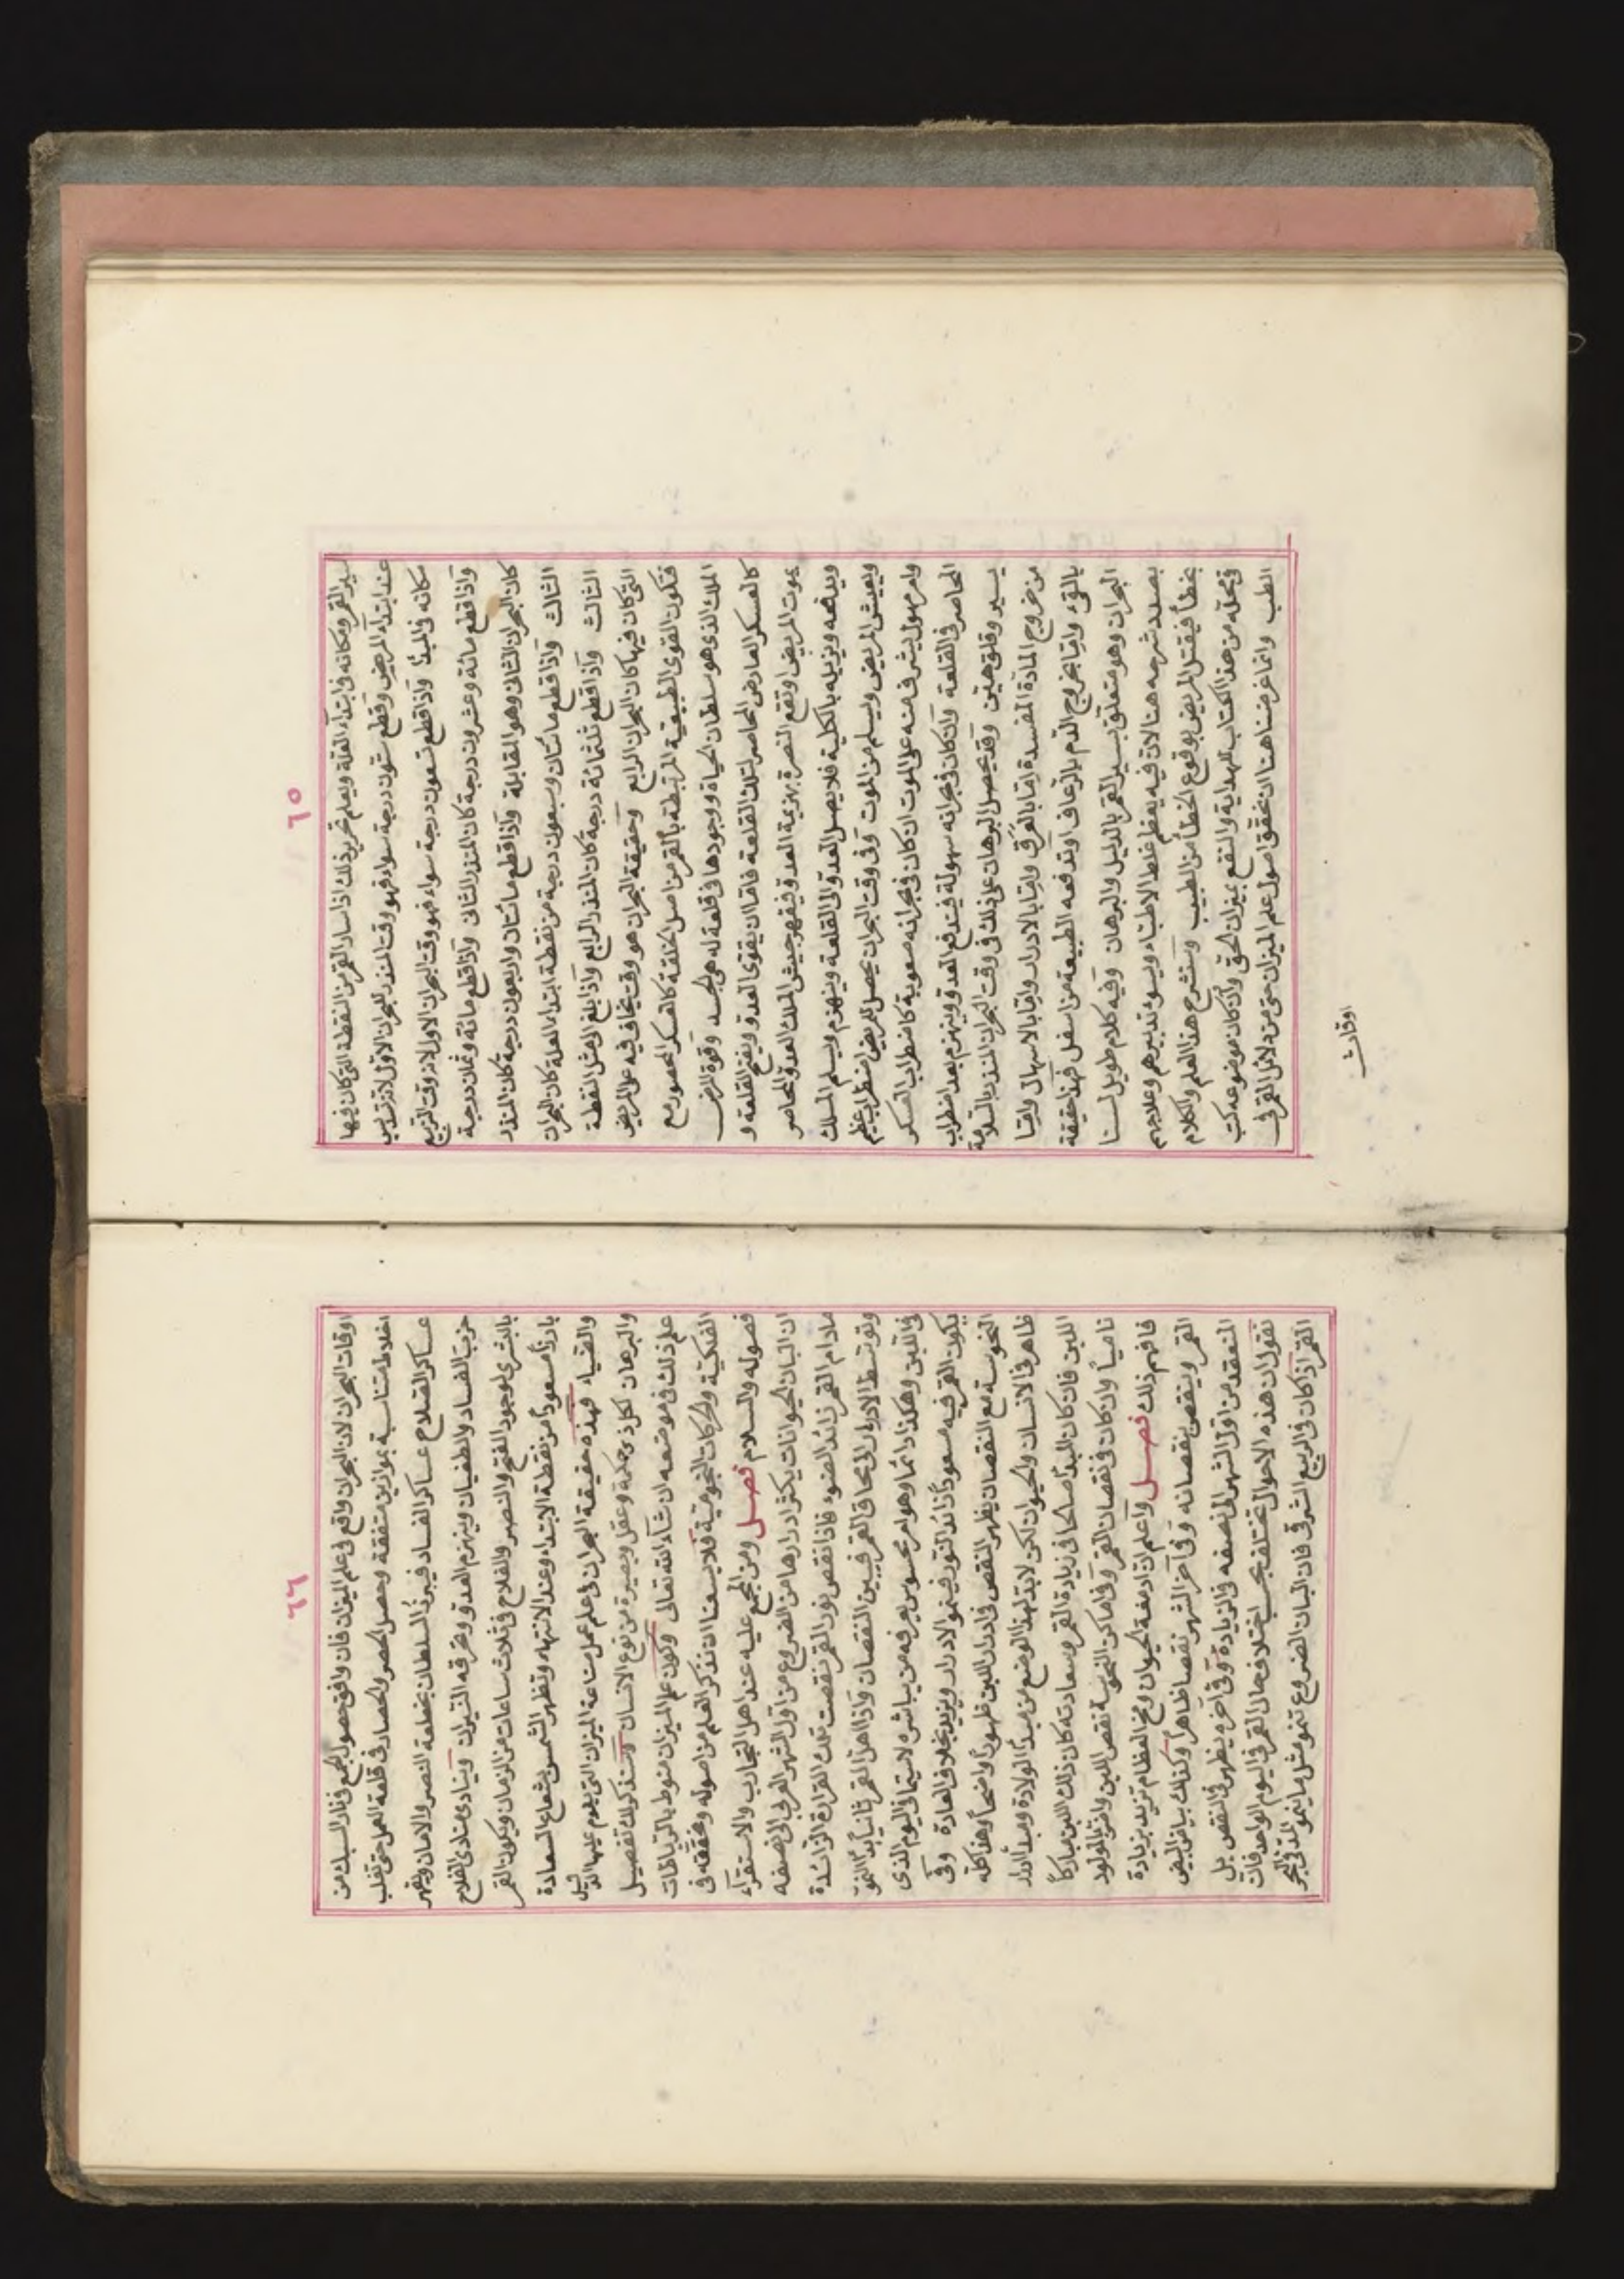 ٦٥
سير القمر ومكانه فى ابتداء العلة ويعلم تحرير ذلك اذا سار القمر من النقطة التى كان فيها
عند ابتداء المريض وقطع ستون درجة سواء فهو وقت المنذر للبحران الاول لانه تسديس
مكانه فى المبدأ واذا قطع تسعون درجة سواء فهو وقت البحران الاول لانه وقت التربيع
واذا قطع مائة وعشرون درجة كان المنذر الثانى واذا قطع مائة وثمانون درجة
كان البحران الثانى وهو المقابلة واذا قطع مائتان واربعون درجة كان المنذر
الثالث واذا قطع مائتان وسبعون درجة من نقطة ابتداء العلة كان البحران
الثالث واذا قطع ثلثمائة درجة كان المنذر الرابع واذا بلغ الى مثل النقطة
التى كان فيها كان البحران الرابع وحقيقة البحران هو وقت يخاف فيه على المريض
فتكون القوى الطبيعية المرتبطة بالقمر من اصل الخلقة كالعسكر المحصور مع
الملك الذى هو سلطان الحياة ووجودها فى قلعة له هى الجسد وقوة المرض
كالعسكر العارض المحاصر لتلك القلعة فاما ان يقوى العدو ويفتح القلعة و
يموت المريض او تقع النصرة بهزيمة العدو فيقهر جيش الملك العدو المحاصر
ويدفعه ويزيله بالكلية فلا يصل العدو الى القلعة وينهزم ويسلم الملك
ويعيش المريض ويسلم من الموت وفى وقت البحران يحصل للمريض اضطراب عظيم
وامر مهول يشرف منه على الموت ان كان فى بحرانه صعوبة كاضطراب العسكر
المحاصر فى القلعة وان كان فى بحرانه سهولة فيندفع العدو وينهزم بعد اضطراب
يسير وقلق هين وقد يحصل البرهان على ذلك فى وقت البحران المنذر بالسلامة
من خروج المادة المفسدة اما بالعرق واما بالادرار واما بالاسهال واما
بالقئ واما بخروج الدم بالرعاف او تدفعه الطبيعة من اسفل فهذا حقيقة
البحران وهو متعلق بسير القمر بالدليل والبرهان وفيه كلام طويل لسنا
بصدد شرحه هنا لان فيه يعظم غلط الاطباء ويسوء تدبيرهم وعلاجهم
بخطأ فيقتل المريض بوقوع الخطأ من الطبيب وسنشرح هذا العلم والكلام
فى محله من هذا الكتاب للهداية والنفع بميزان الحق وان كان موضوعه كتب
الطب وانما غرضنا هنا ان نحقق اصول علم الميزان حتى من دلائل القمر فى
اوقات
٦٦
اوقات البحران لان البحران واقع فى علم الميزان فان وافق حصول الجمع فى نار السبك من
اخلاط متناسبة بموازين متفقة وحصل الحصر والحصار فى قلعة العمل حتى تغلب
عساكر الصلاح عساكر الفساد فيبرز السلطان بخلعة النصر والامان ويقهر
حزب الفساد والطغيان وينهزم العدو وتحرقه النيران وينادى منادى الفلاح
بالبشرى لوجود الفتح والنصر والفلاح فى ثلاث ساعات من الزمان ويكون القمر
بارزا مسعودا من نقطة الابتداء وعند الانتهاء وتظهر الشمس بشعاع السعادة
والضياء فهذه حقيقة البحران فى علم عمل صناعة الميزان التى يقوم عليها الدليل
والبرهان لكل ذى حكمة وعقل وبصيرة من نوع الانسان وسنذكر لك تفصيل
علم ذلك فى موضعه ان شاء الله تعالى وكون علم الميزان منوط بالرباطات
الفلكية والحركات النجومية فلا يسعنا ان نذكر العلم من اصوله ونحققه فى
فصوله والسلام فصل ومن المجمع عليه عند اهل التجارب والاستقراء
ان البان الحيوانات يكثر ادرارها من الضروع من اول الشهر العربى الى نصفه
مادام القمر زائد الضوء فاذا نقص نور القمر نقصت تلك الغزارة الزائدة
وتوسط الادرار الى محاق القمر فيبين النقصان واذا اهل القمر ثانيا بدأ النمو
فى اللبن وهكذا دائما وهو امر محسوس يعرفه من يباشره لا سيما فى اليوم الذى
يكون القمر فيه مسعودا زائد النور فينمو الادرار ويزيد بخلاف العادة وفى
النحوسة مع النقصان يظهر النقص فى ادرار اللبن ظهورا واضحا وهذا كله
ظاهر فى الانسان والحيوان لكن لابد لهذا الوضع من مبدأ الولادة ومبدأ ادرار
اللبن فان كان المبدأ صالحا فى زيادة القمر وسعادته كان ذلك اللبن مباركا
ناميا وان كان فى نقصان القمر وفى اماكن النحوسة نقص اللبن واضر بالمولود
فافهم ذلك فصل واعلم ان ادمغة الحيوان ومخ العظام تزيد بزيادة
القمر وينقص بنقصانه وفى آخر الشهر نقصا ظاهرا وكذلك بياض البيض
المنعقد من اول الشهر الى نصفه فى الزيادة وفى آخره يظهر فى النقص بل
نقول ان هذه الاحوال تختلف بحسب اختلاف حال القمر فى اليوم الواحد فان
القمر اذا كان فى الربع الشرقى فان البان الضروع تنمو مثل ما ينمو المد فى البحر